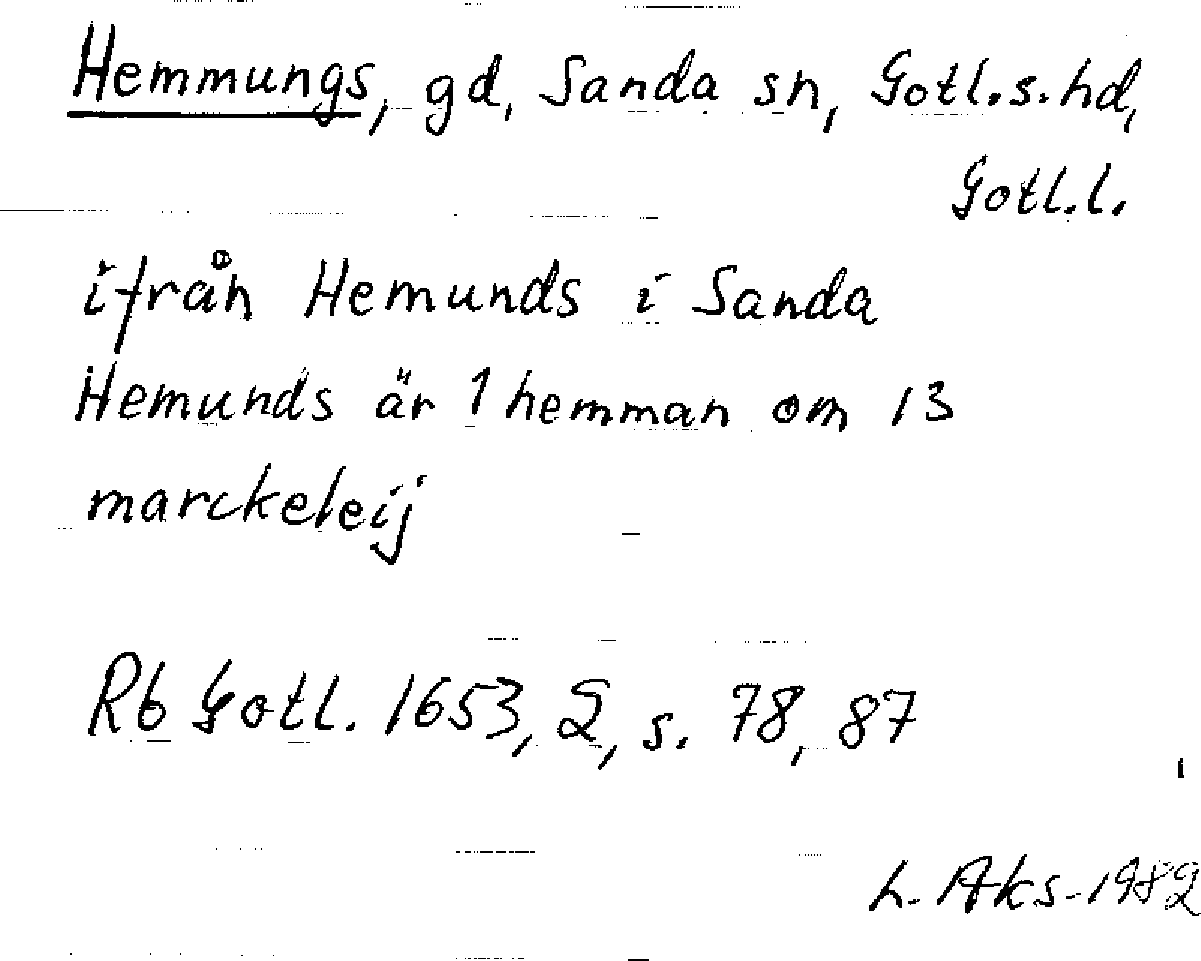 Hemmungs, gd, Sanda sn, Gotl.s.hd,
Gotl.l.
ifrån Hemunds i Sanda
Hemunds är 1 hemman om 13
marckeleij
Rb Gotl. 1653, 2, s. 78, 87
L. Aks. 1982